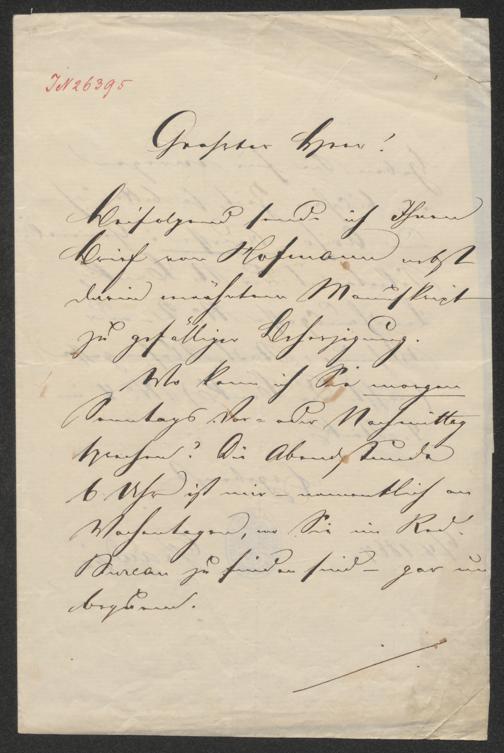 IN 26395
Geehrter Herr!
Beifolgend sende ich Ihnen
Brief von Hofmann nebst
darin erwähntem Manuskript
zu gefälliger Beherzigung.
Wo kann ich Sie morgen
Sonntags Vor- oder Nachmittag
sprechen? Die Abendstunde
6 Uhr ist mir – namentlich an
Wochentagen, wo Sie im Red.
Bureau zu finden sind – gar un
bequem.